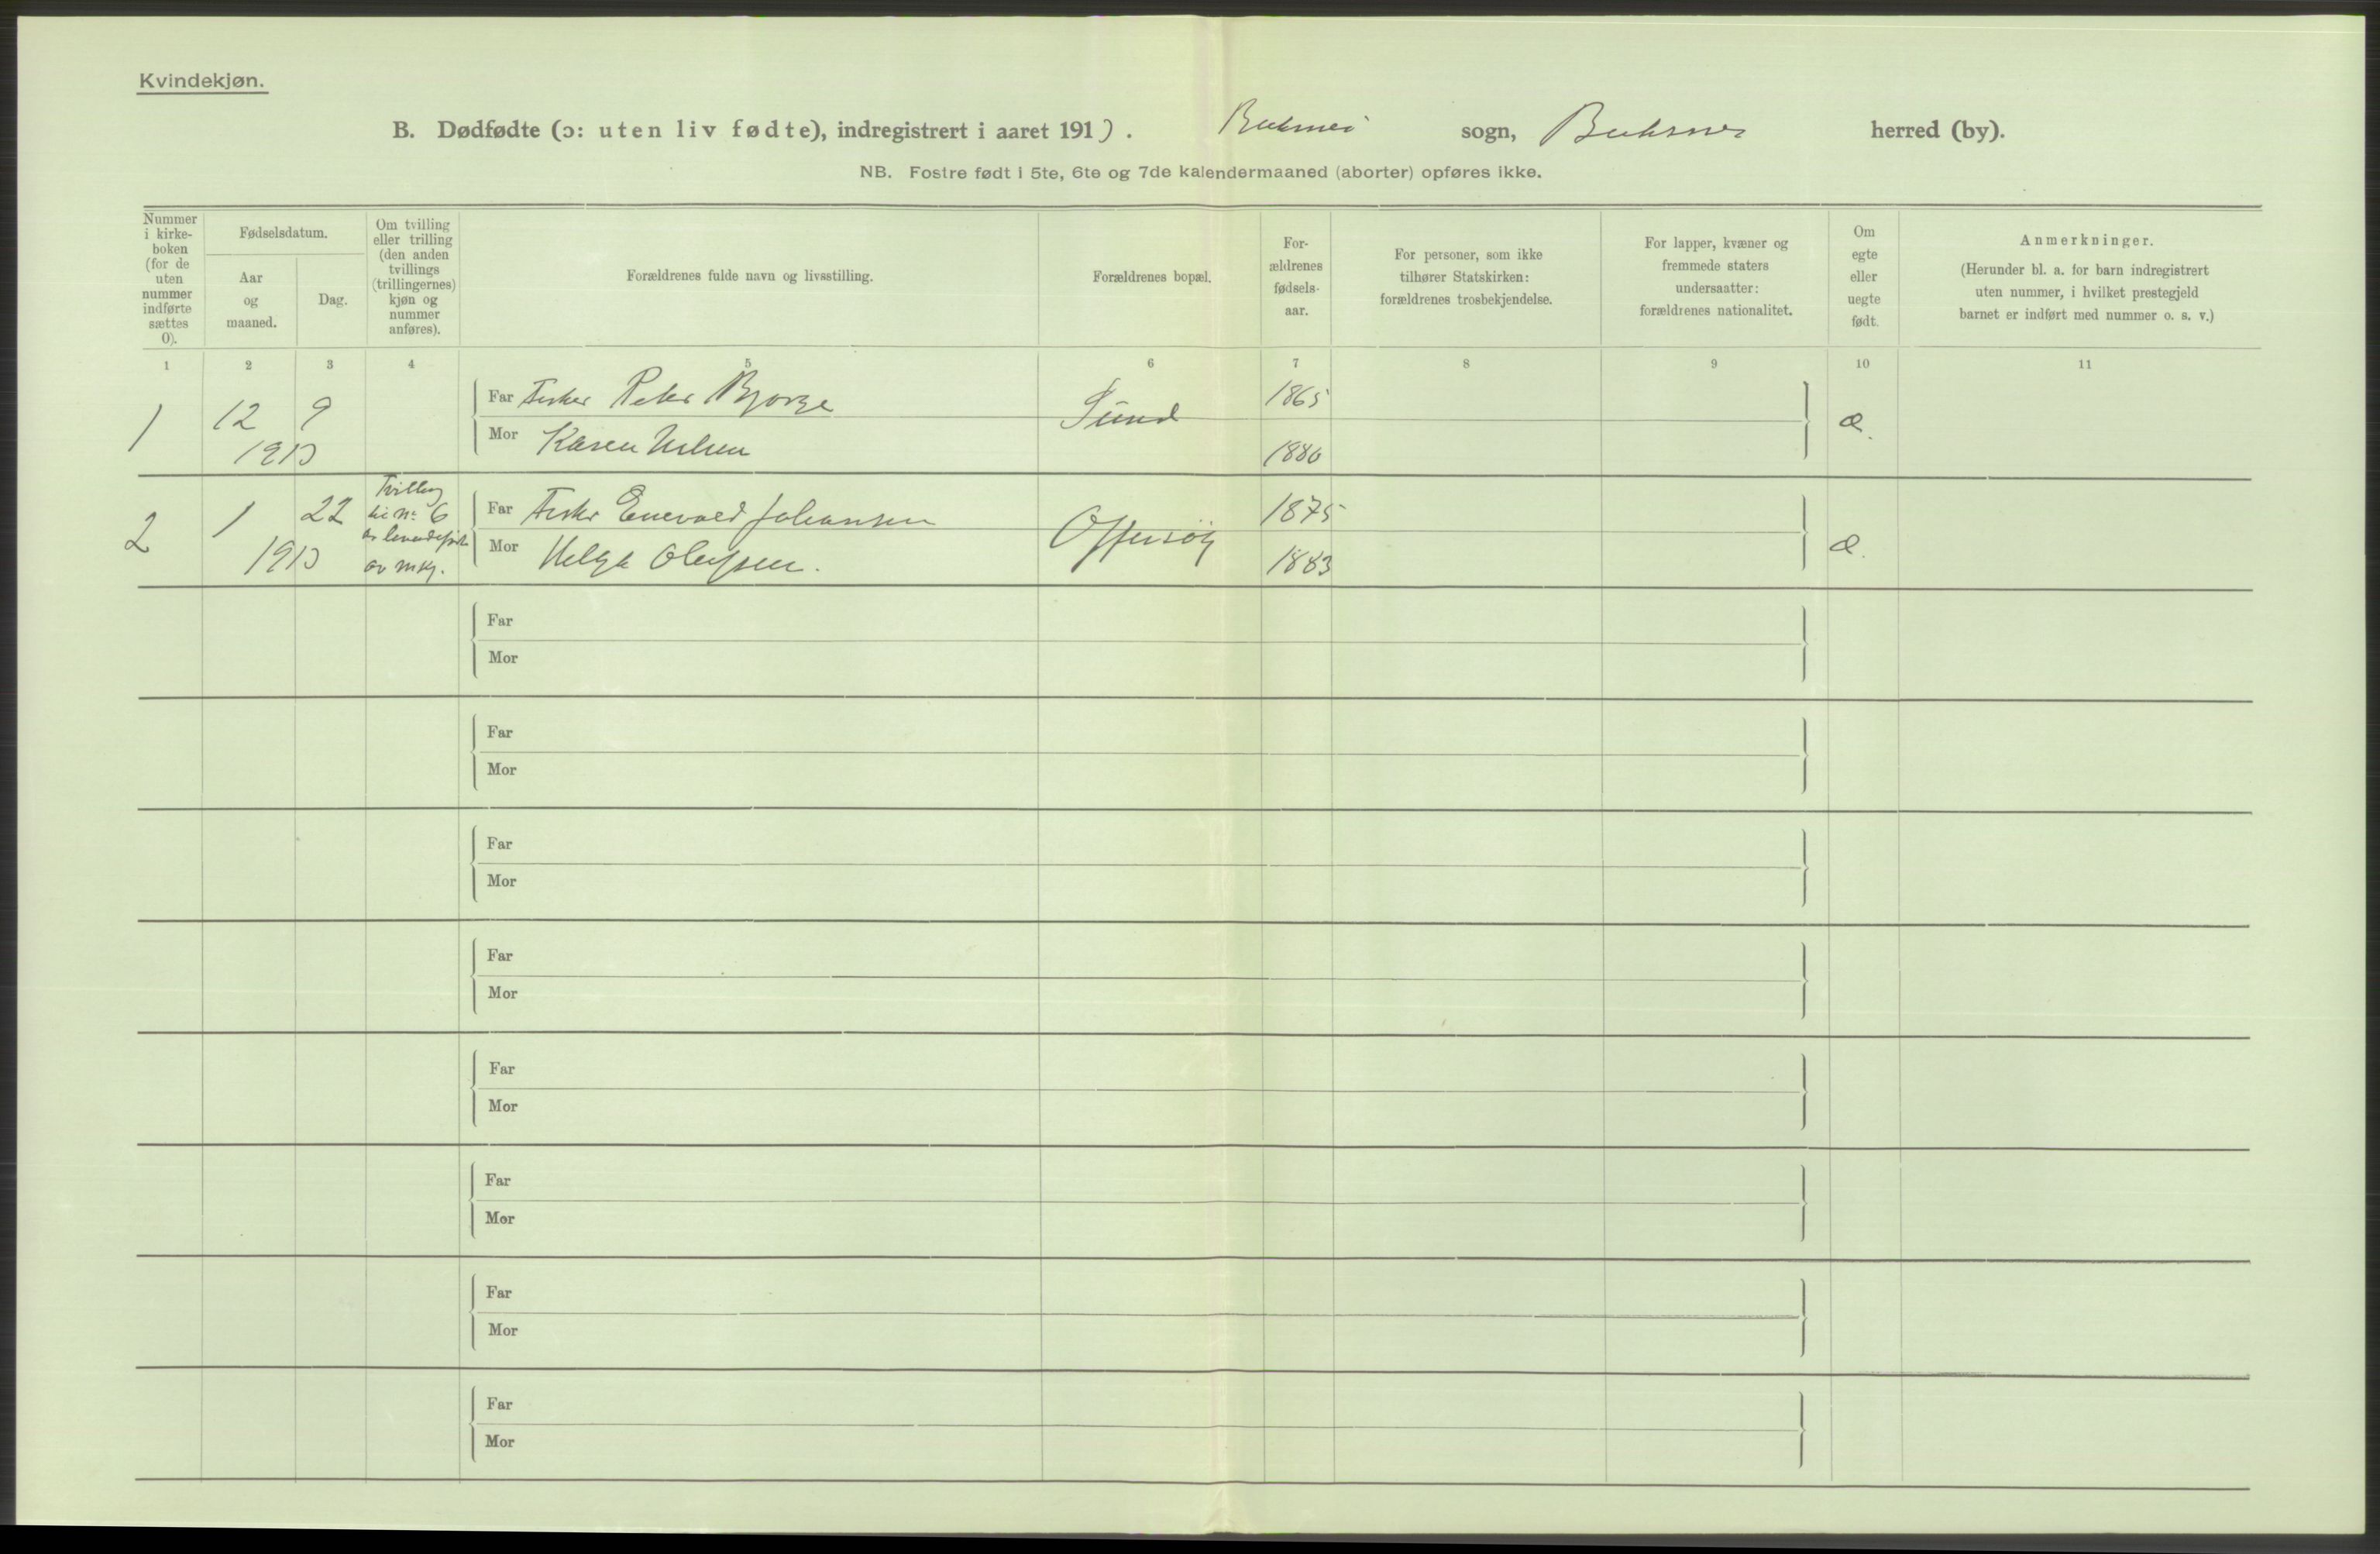 Kvindekjøn.
B. Dødfødte (ɔ: uten liv fødte), indregistrert i aaret 191). Buksnes sogn, Buksnes herred (by).
NB. Fostre født i 5te, 6te og 7de kalendermaaned (aborter) opføres ikke.
Nummer i kirke-boken (for de uten nummer indførte sættes 0).
Fødselsdatum.
Aar og maaned.
Dag.
Om tvilling eller trilling (den anden tvillings (trillingernes) kjøn og nummer anføres).
Forældrenes fulde navn og livsstilling.
Forældrenes bopæl.
For-ældrenes fødsels-aar.
For personer, som ikke tilhører Statskirken: forældrenes trosbekjendelse.
For lapper, kvæner og fremmede staters undersaatter: forældrenes nationalitet.
Om egte eller uegte født.
Anmerkninger.
(Herunder bl. a. for barn indregistrert uten nummer, i hvilket prestegjeld barnet er indført med nummer o. s. v.)
1 2 3 4 5 6 7 8 9 10 11
1 12 9 Far Fisker Peder Bjørge Sund 1865 æ.
191) Mor Karen Nilsen 1880
2 1 22 Tvilling til No 6 av levendefødte av mkj. Far Fisker Enevald Johansen Offersøy 1875 æ.
191) Mor Helga Olufsen. 1883
Far
Mor
Far
Mor
Far
Mor
Far
Mor
Far
Mor
Far
Mor
Far
Mor
Far
Mor